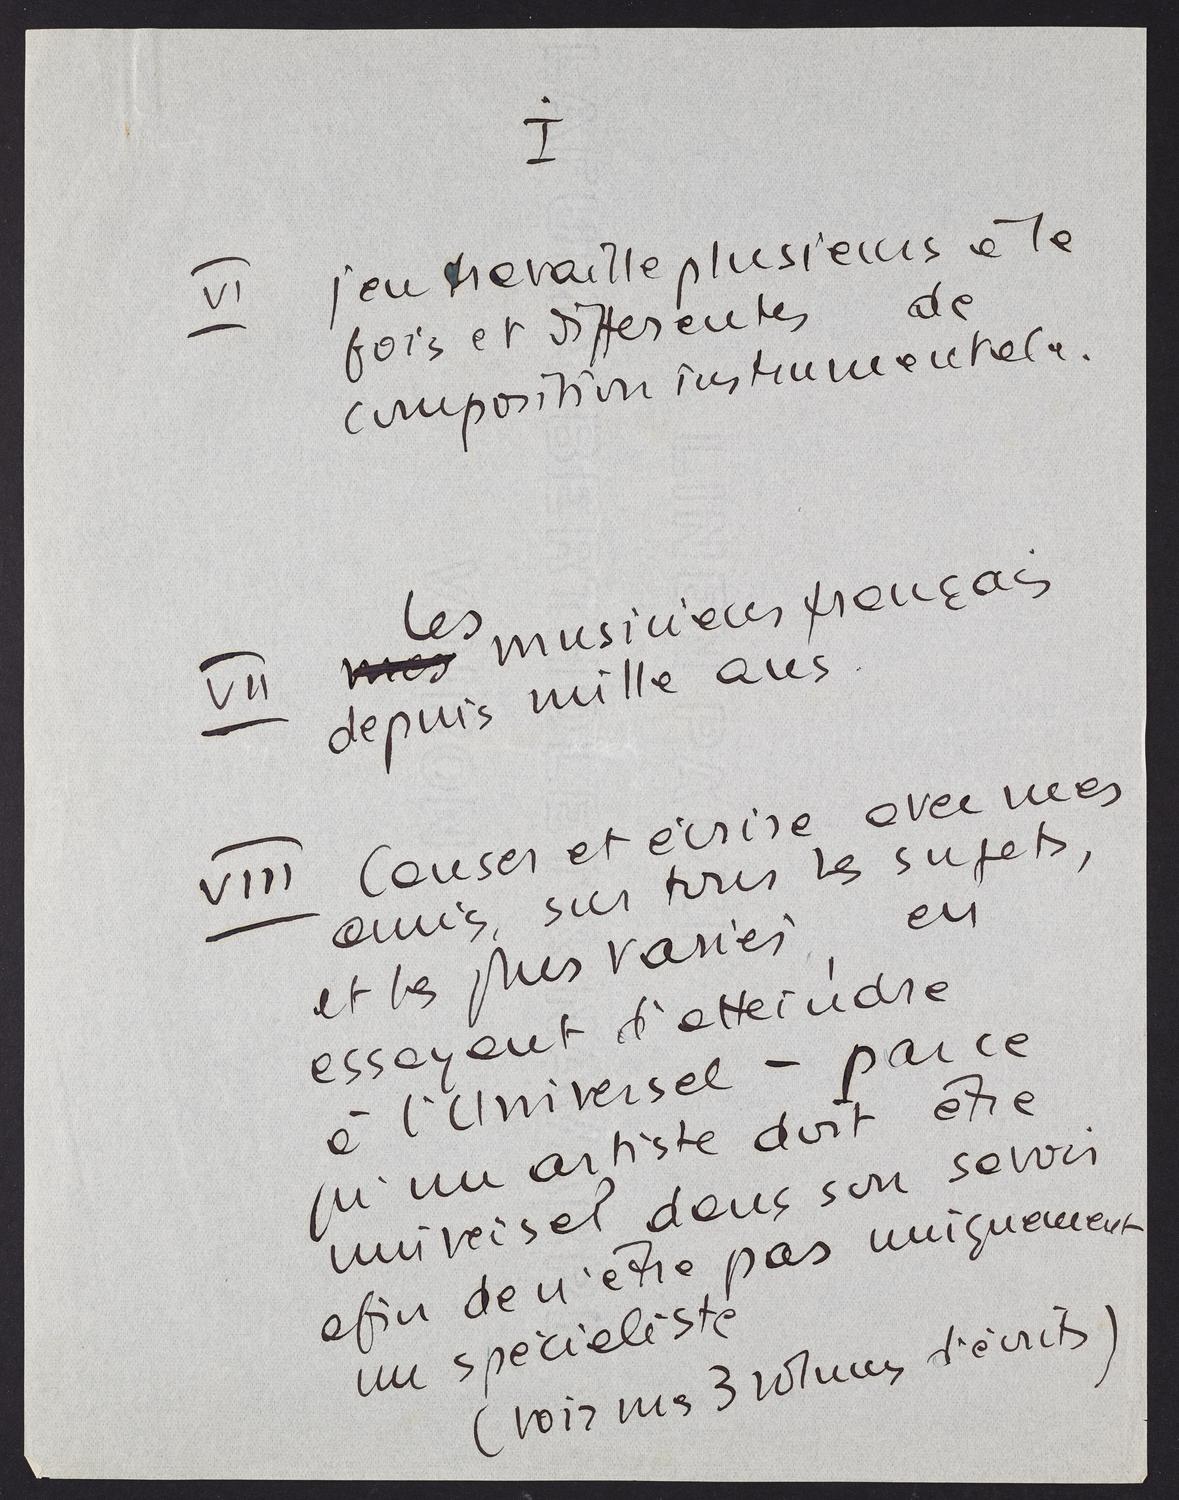 I
VI j'en travaille plusieurs à la
fois et différentes de
composition instrumentale.
Les
VII mes musiciens français
depuis mille ans.
VIII Causer et écrire avec mes
amis, sur tous les sujets,
et les plus variés, en
essayant d'atteindre
à l'Universel – parce
qu'un artiste doit être
universel dans son savoir
afin de n'être pas uniquement
un spécialiste
(voir mes 3 volumes d'écrits)